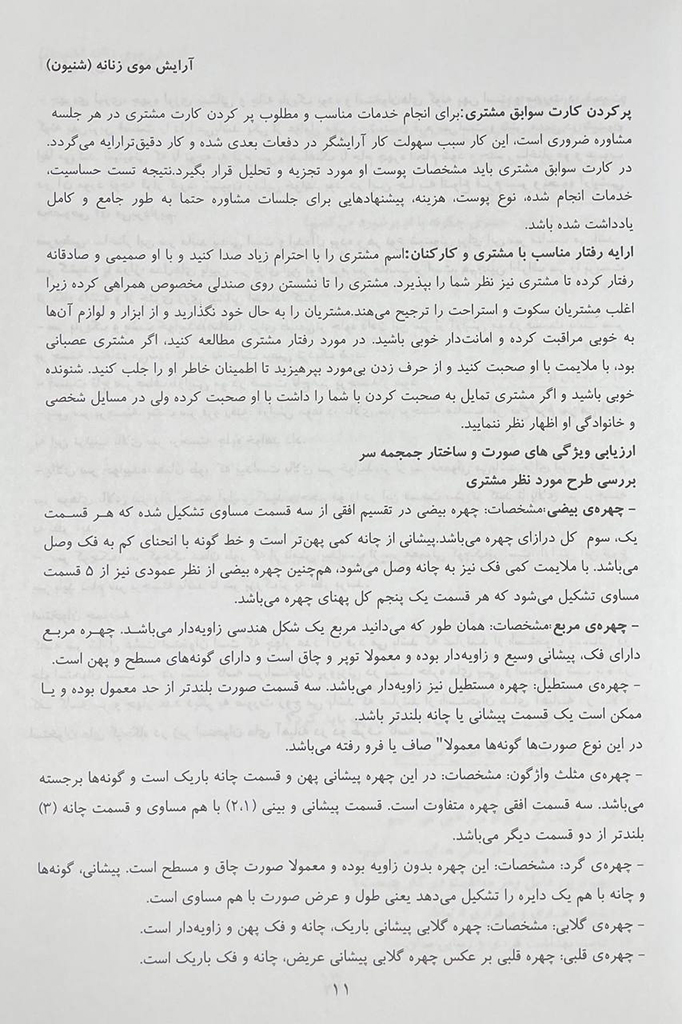 آرایش موی زنانه (شنیون)
پر کردن کارت سوابق مشتری:برای انجام خدمات مناسب و مطلوب پر کردن کارت مشتری در هر جلسه
مشاوره ضروری است، این کار سبب سهولت کار آرایشگر در دفعات بعدی شده و کار دقیق‌ترارایه می‌گردد.
در کارت سوابق مشتری باید مشخصات پوست او مورد تجزیه و تحلیل قرار بگیرد.نتیجه تست حساسیت،
خدمات انجام شده، نوع پوست، هزینه، پیشنهادهایی برای جلسات مشاوره حتما به طور جامع و کامل
یادداشت شده باشد.
ارایه رفتار مناسب با مشتری و کارکنان:اسم مشتری را با احترام زیاد صدا کنید و با او صمیمی و صادقانه
رفتار کرده تا مشتری نیز نظر شما را بپذیرد. مشتری را تا نشستن روی صندلی مخصوص همراهی کرده زیرا
اغلب مشتریان سکوت و استراحت را ترجیح می‌هند.مشتریان را به حال خود نگذارید و از ابزار و لوازم آن‌ها
به خوبی مراقبت کرده و امانت‌دار خوبی باشید. در مورد رفتار مشتری مطالعه کنید، اگر مشتری عصبانی
بود، با ملایمت با او صحبت کنید و از حرف زدن بی‌مورد بپرهیزید تا اطمینان خاطر او را جلب کنید. شنونده
خوبی باشید و اگر مشتری تمایل به صحبت کردن با شما را داشت با او صحبت کرده ولی در مسایل شخصی
و خانوادگی او اظهار نظر ننمایید.
ارزیابی ویژگی های صورت و ساختار جمجمه سر
بررسی طرح مورد نظر مشتری
- چهره‌ی بیضی:مشخصات: چهره بیضی در تقسیم افقی از سه قسمت مساوی تشکیل شده که هر قسمت
یک، سوم کل درازای چهره می‌باشد.پیشانی از چانه کمی پهن‌تر است و خط گونه با انحنای کم به فک وصل
می‌باشد. با ملایمت کمی فک نیز به چانه وصل می‌شود، هم‌چنین چهره بیضی از نظر عمودی نیز از ۵ قسمت
مساوی تشکیل می‌شود که هر قسمت یک پنجم کل پهنای چهره می‌باشد.
- چهره‌ی مربع:مشخصات: همان طور که می‌دانید مربع یک شکل هندسی زاویه‌دار می‌باشد. چهره مربع
دارای فک، پیشانی وسیع و زاویه‌دار بوده و معمولا توپر و چاق است و دارای گونه‌های مسطح و پهن است.
- چهره‌ی مستطیل: چهره مستطیل نیز زاویه‌دار می‌باشد. سه قسمت صورت بلندتر از حد معمول بوده و یا
ممکن است یک قسمت پیشانی یا چانه بلندتر باشد.
در این نوع صورت‌ها گونه‌ها معمولا" صاف یا فرو رفته می‌باشد.
- چهره‌ی مثلث واژگون: مشخصات: در این چهره پیشانی پهن و قسمت چانه باریک است و گونه‌ها برجسته
می‌باشد. سه قسمت افقی چهره متفاوت است. قسمت پیشانی و بینی (۲،۱) با هم مساوی و قسمت چانه (۳)
بلندتر از دو قسمت دیگر می‌باشد.
- چهره‌ی گرد: مشخصات: این چهره بدون زاویه بوده و معمولا صورت چاق و مسطح است. پیشانی، گونه‌ها
و چانه با هم یک دایره را تشکیل می‌دهد یعنی طول و عرض صورت با هم مساوی است.
- چهره‌ی گلابی: مشخصات: چهره گلابی پیشانی باریک، چانه و فک پهن و زاویه‌دار است.
- چهره‌ی قلبی: چهره قلبی بر عکس چهره گلابی پیشانی عریض، چانه و فک باریک است.
۱۱